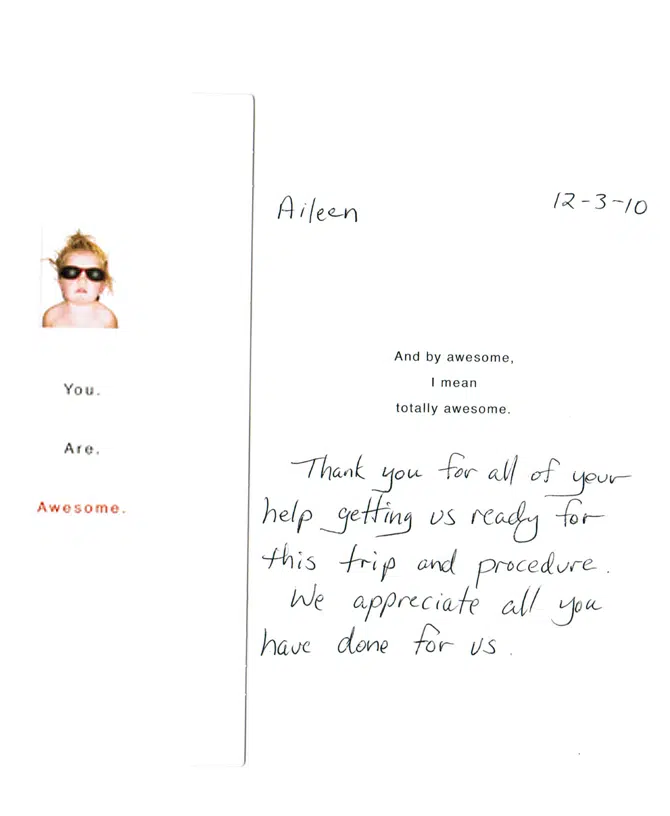 You.
Are.
Awesome.
Aileen
12-3-10
And by awesome,
I mean
totally awesome.
Thank you for all of your
help getting us ready for
this trip and procedure.
We appreciate all you
have done for us.